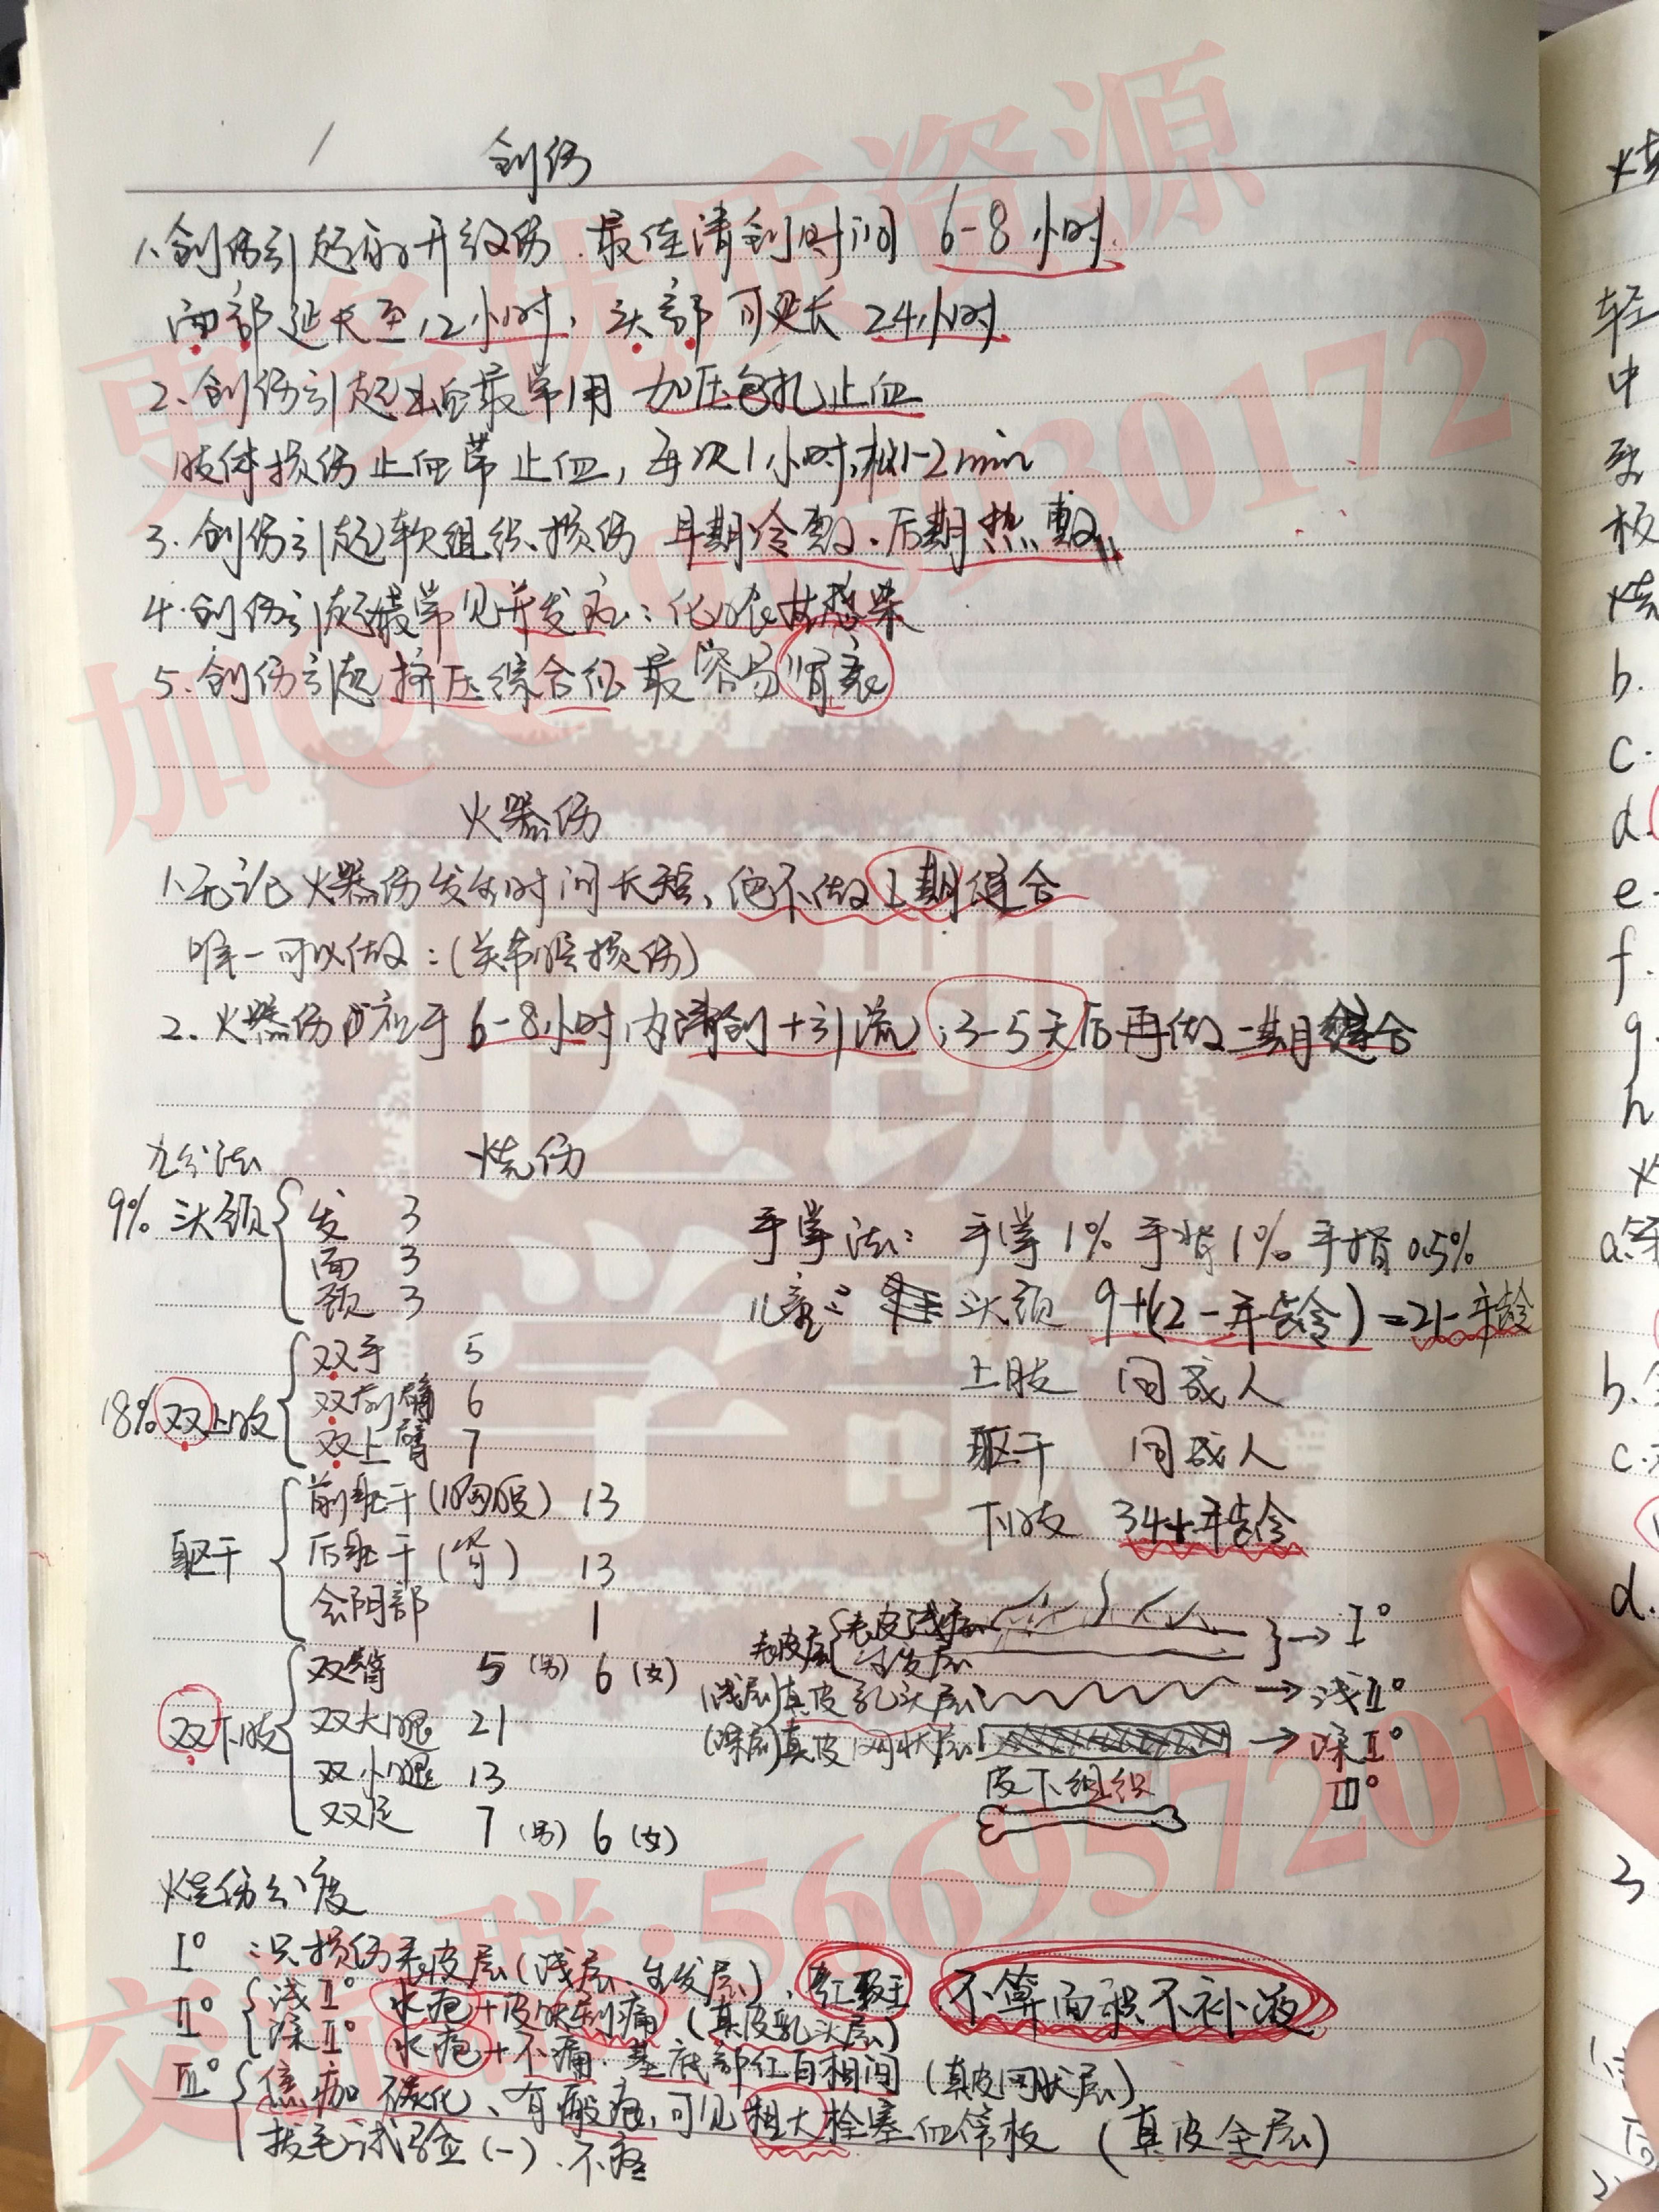 创伤
1、创伤引起的开放伤.最佳清创时间 6-8小时.
面部延长至12小时,头部可延长 24小时
2、创伤引起出血最常用 加压包扎止血
肢体损伤止血带止血,每次1小时,松1-2min
3.创伤引起软组织损伤 早期冷敷、后期热敷
4.创伤引起最常见并发症:化脓性感染
5.创伤引起挤压综合征最容易肾衰
火器伤
1、无论火器伤发生时间长短,绝不做Ⅰ期缝合
唯一可以做:(关节腔损伤)
2、火器伤应于6-8小时内清创+引流;3-5天后再做二期缝合
九分法 烧伤
9% 头颈 发 3
面 3
颈 3
手掌法: 手掌 1% 手指 0.5%
儿童: 头颈 9+(12-年龄)=21-年龄
18% 双上肢 双手 5
双前臂 6
双上臂 7
上肢 同成人
躯干 同成人
下肢 34+年龄
躯干 前躯干(胸腹) 13
后躯干(背) 13
会阴部 1
双下肢 双臀 5(男) 6(女)
双大腿 21
双小腿 13
双足 7(男) 6(女)
表皮层 表皮浅层 生发层 → Ⅰ°
(浅层)真皮乳头层 → 浅Ⅱ°
(深层)真皮网状层 → 深Ⅱ°
皮下组织 Ⅲ°
烧伤分度
Ⅰ° :只损伤表皮层(浅层、生发层)、红斑 不算面积不补液
Ⅱ° 浅Ⅱ° 水疱+皮肤剧痛 (真皮乳头层)
深Ⅱ° 水疱+不痛.基底部红白相间(真皮网状层)
Ⅲ° 焦痂 碳化、有瘢痕,可见粗大栓塞血管枝 (真皮全层)
拔毛试验(-).不疼
更多优质资源
加QQ:
交流群:566957201
医凯学歌
轻
中
板
b.
c.
d
e
f.
g.
h
b.
c.
d.
3